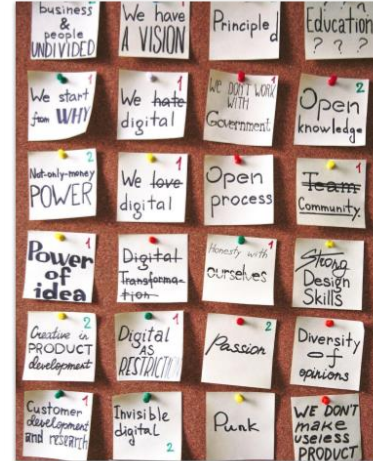 business
&
people
UNDIVIDED
We have
A VISION
Principle
d
Education
? ? ?
1
We start
from WHY
1
We hate
digital
1
We DON'T WORK
WITH
Government
2
Open
knowledge
2
Not-only-money
POWER
1
We love
digital
Open
process
1
Team
Community
1
Power
of
idea
Digital
Transforma-
tion
1
Honesty with
ourselves
Strong
Design
Skills
2
Creative in
PRODUCT
development
1
Digital
AS
RESTRICTION
2
Passion
Diversity
of
opinions
1
Customer
development
and research
Invisible
digital
2
Punk
WE DON'T
make
useless
PRODUCT